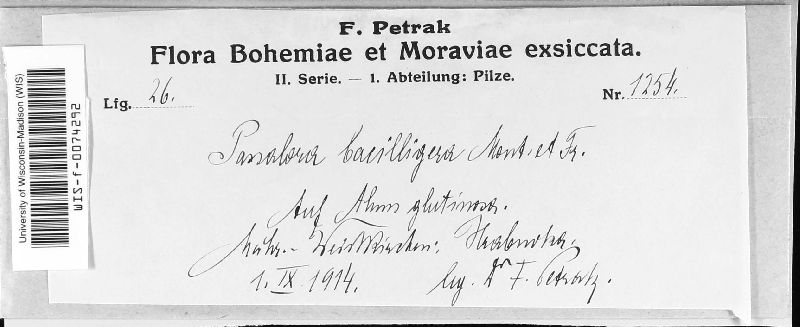 F. Petrak
Flora Bohemiae et Moraviae exsiccata.
II. Serie. — 1. Abteilung: Pilze.
Lfg. 26.
Nr. 1254.
Passalora bacilligera Mont. et Fr.
Auf Alnus glutinosa.
Mähr.-Weisskirchen: Hrabuvka.
1. IX. 1914.
leg. Dr F. Petrak.
University of Wisconsin-Madison (WIS)
WIS-f-0074292